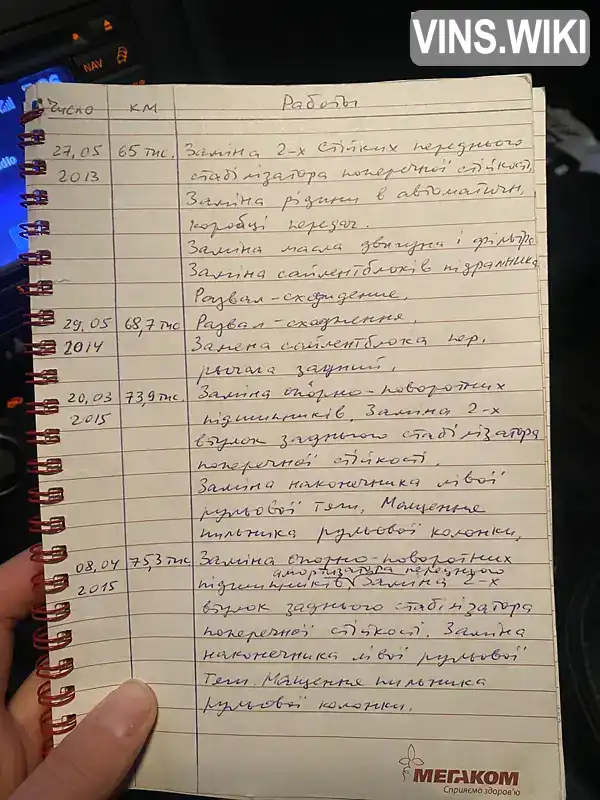 VINS.WIKI
NAV
Число км Работы
27,05 65 тис. Заміна 2-х стійких переднього
2013 стабілізатора поперечної стійкості,
Заміна рідини в автоматичн,
коробці передач.
Заміна масла двигуна і фільтр
Заміна сайлентблоків підрамника
Развал-схождение,
29,05 68,7 тис Развал-сходження,
2014 Замена сайлентблока пер,
рычага задний,
20,03 73,9 тис. Заміна опорно-поворотних
2015 підшипників. Заміна 2-х
втулок заднього стабілізатора
поперечної стійкості,
Заміна наконечника лівої
рульової тяги, Мащення
пильника рульової колонки,
08,04 75,3 тис Заміна опорно-поворотних
амортизатора переднього
2015 підшипників, Заміна -х
втулок заднього стабілізатора
поперечної стійкості. Заміна
наконечника лівої рульової
тяги. Мащення пильника
рульової колонки.
МЕГАКОМ
Сприяємо здоров'ю